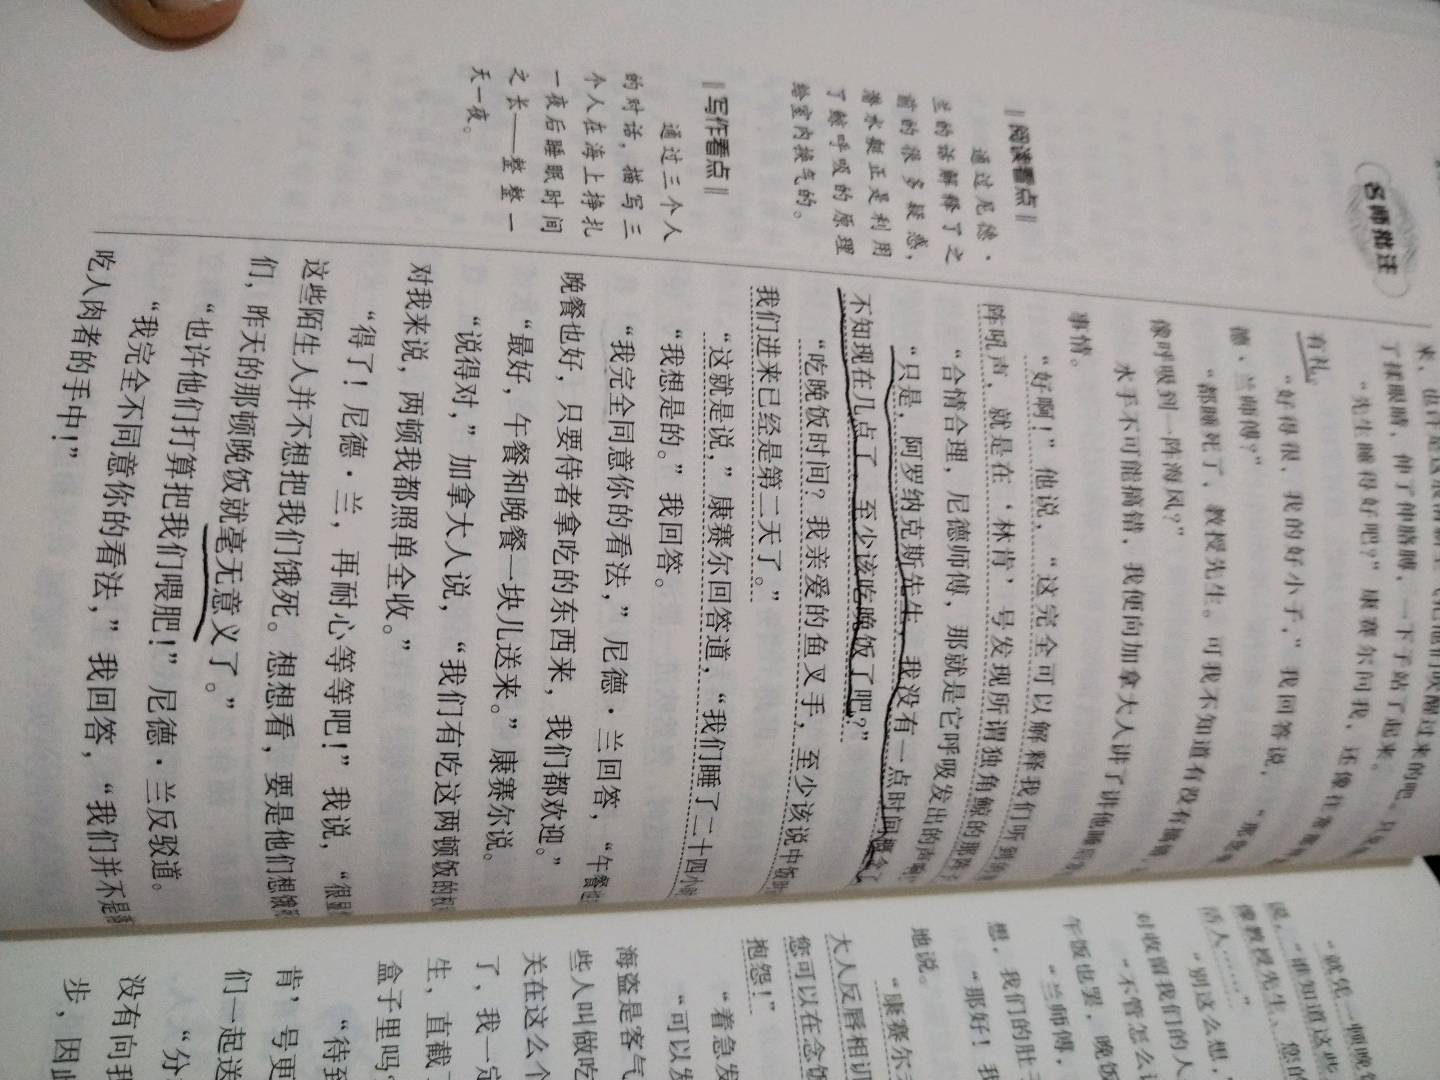 名师批注
‖阅读看点‖
通过尼德·
兰的话解释了之
前的很多疑惑，
潜水艇正是利用
了鲸呼吸的原理
给室内换气的。
‖写作看点‖
通过三个人
的对话，描写三
个人在海上挣扎
一夜后睡眠时间
之长——整整一
天一夜。
了揉眼睛，伸了伸胳膊，一下子站了起来。
“先生睡得好吧？”康赛尔问我，还像往常那样
有礼。
“好得很，我的好小子，”我回答说，
德·兰师傅？”
“都睡死了，教授先生。可我不知道有没有搞错，
像呼吸到一阵海风？”
水手不可能搞错，我便向加拿大人讲了讲他睡后的
事情。
“好啊！”他说，“这完全可以解释我们听到的
阵吼声，就是在‘林肯’号发现所谓独角鲸的那阵
“合情合理，尼德师傅，那就是它呼吸发出的声响。
“只是，阿罗纳克斯先生，我没有一点时间概念了，
不知现在几点了，至少该吃晚饭了吧？”
“吃晚饭时间？我亲爱的鱼叉手，至少该说中饭时
我们进来已经是第二天了。”
“这就是说，”康赛尔回答道，“我们睡了二十四小时
“我想是的。”我回答。
“我完全同意你的看法，”尼德·兰回答，“午餐也
晚餐也好，只要侍者拿吃的东西来，我们都欢迎。”
“最好，午餐和晚餐一块儿送来。”康赛尔说。
“说得对，”加拿大人说，“我们有吃这两顿饭的权
对我来说，两顿我都照单全收。”
“得了！尼德·兰，再耐心等等吧！”我说，“很显
这些陌生人并不想把我们饿死。想想看，要是他们想饿死
们，昨天的那顿晚饭就毫无意义了。”
“也许他们打算把我们喂肥！”尼德·兰反驳道。
“我完全不同意你的看法，”我回答，“我们并不是
吃人肉者的手中！”
“就凭一顿晚
说，“谁知道这些
像教授先生、您的
活人……”
“别这么想，
对收留我们的人
“不管怎么
午饭也罢，晚饭
“兰师傅，
想，我们的肚
“那好！我
地说。
“康赛尔
大人反唇相讥
您可以在念饭
抱怨！”
“着急发
“可以发
海盗是客气
些人叫做吃
关在这么个
了，我一定
生，直截
盒子里吗
“待到
肯’号更
们一起送
“分
没有向我
步，因此